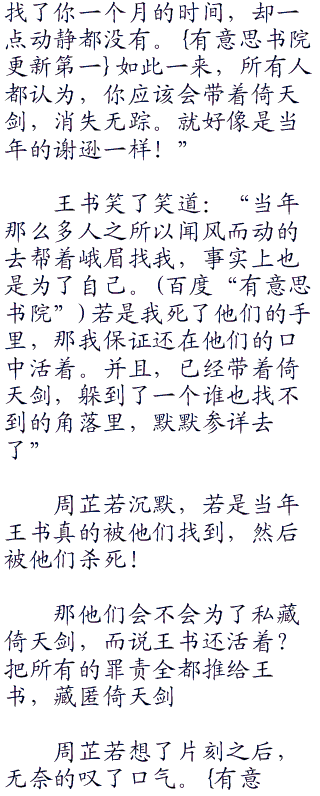 找了你一个月的时间，却一
点动静都没有。{有意思书院
更新第一}如此一来，所有人
都认为，你应该会带着倚天
剑，消失无踪。就好像是当
年的谢逊一样！”
王书笑了笑道：“当年
那么多人之所以闻风而动的
去帮着峨眉找我，事实上也
是为了自己。(百度“有意思
书院”)若是我死了他们的手
里，那我保证还在他们的口
中活着。并且，已经带着倚
天剑，躲到了一个谁也找不
到的角落里，默默参详去
了”
周芷若沉默，若是当年
王书真的被他们找到，然后
被他们杀死！
那他们会不会为了私藏
倚天剑，而说王书还活着？
把所有的罪责全都推给王
书，藏匿倚天剑
周芷若想了片刻之后，
无奈的叹了口气。{有意